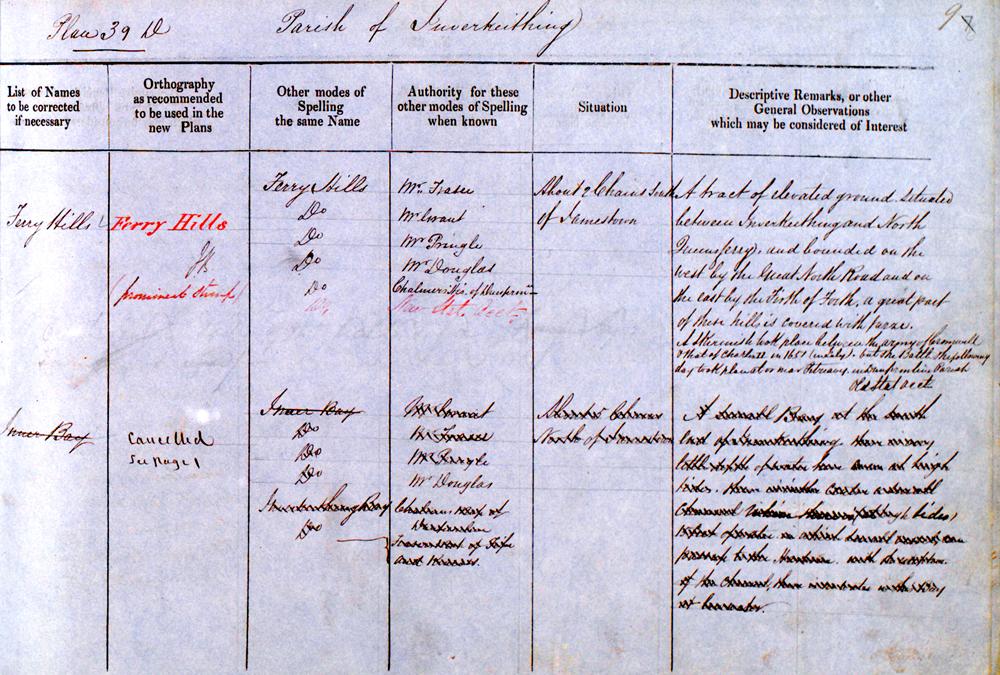 Plan 39 D
Parish of Inverkeithing
9
List of Names to be corrected if necessary
Orthography as recommended to be used in the new Plans
Other modes of Spelling the same Name
Authority for these other modes of Spelling when known
Situation
Descriptive Remarks, or other General Observations which may be considered of Interest
Ferry Hills
Ferry Hills
JB
(prominent Stump)
Ferry Hills
Do
Do
Do
Do
Do
Mr. Fraser
Mr. Swant
Mr Pringle
Mr Douglas
Chalmers's His. of Dunfermn
New Stat. Acct.
About 2 Chains South
of Jamestown
A tract of elevated ground situated
between Inverkeithing and North
Queensferry, and bounded on the
west by the Great North Road and on
the east by the Firth of Forth, a great part
of these hills is covered with furze.
A Skirmish took place between the army of Cromwell
& that of Charles II in 1651 but the Battle the following
day took place at or near Pitreavie, in Dunfermline Parish
Old Stat Acct
Inner Bay
Cancelled
See page 1
Inner Bay
Do
Do
Do
Inverkeithing Bay
Do
Mr Swant
Mr Fraser
Mr Pringle
Mr Douglas
Chalmers Map of
Dunfermline
of Fife
and Kinross.
Chains
North of Jamestown
A small Bay at the South
end of Inverkeithing
little depth of water have even at high
tides, there is in the Centre a small
Channel tides)
of water in which small vessels can
pass up to the Harbour with the exception
of the Channel, there is no water in the Bay
at low water.